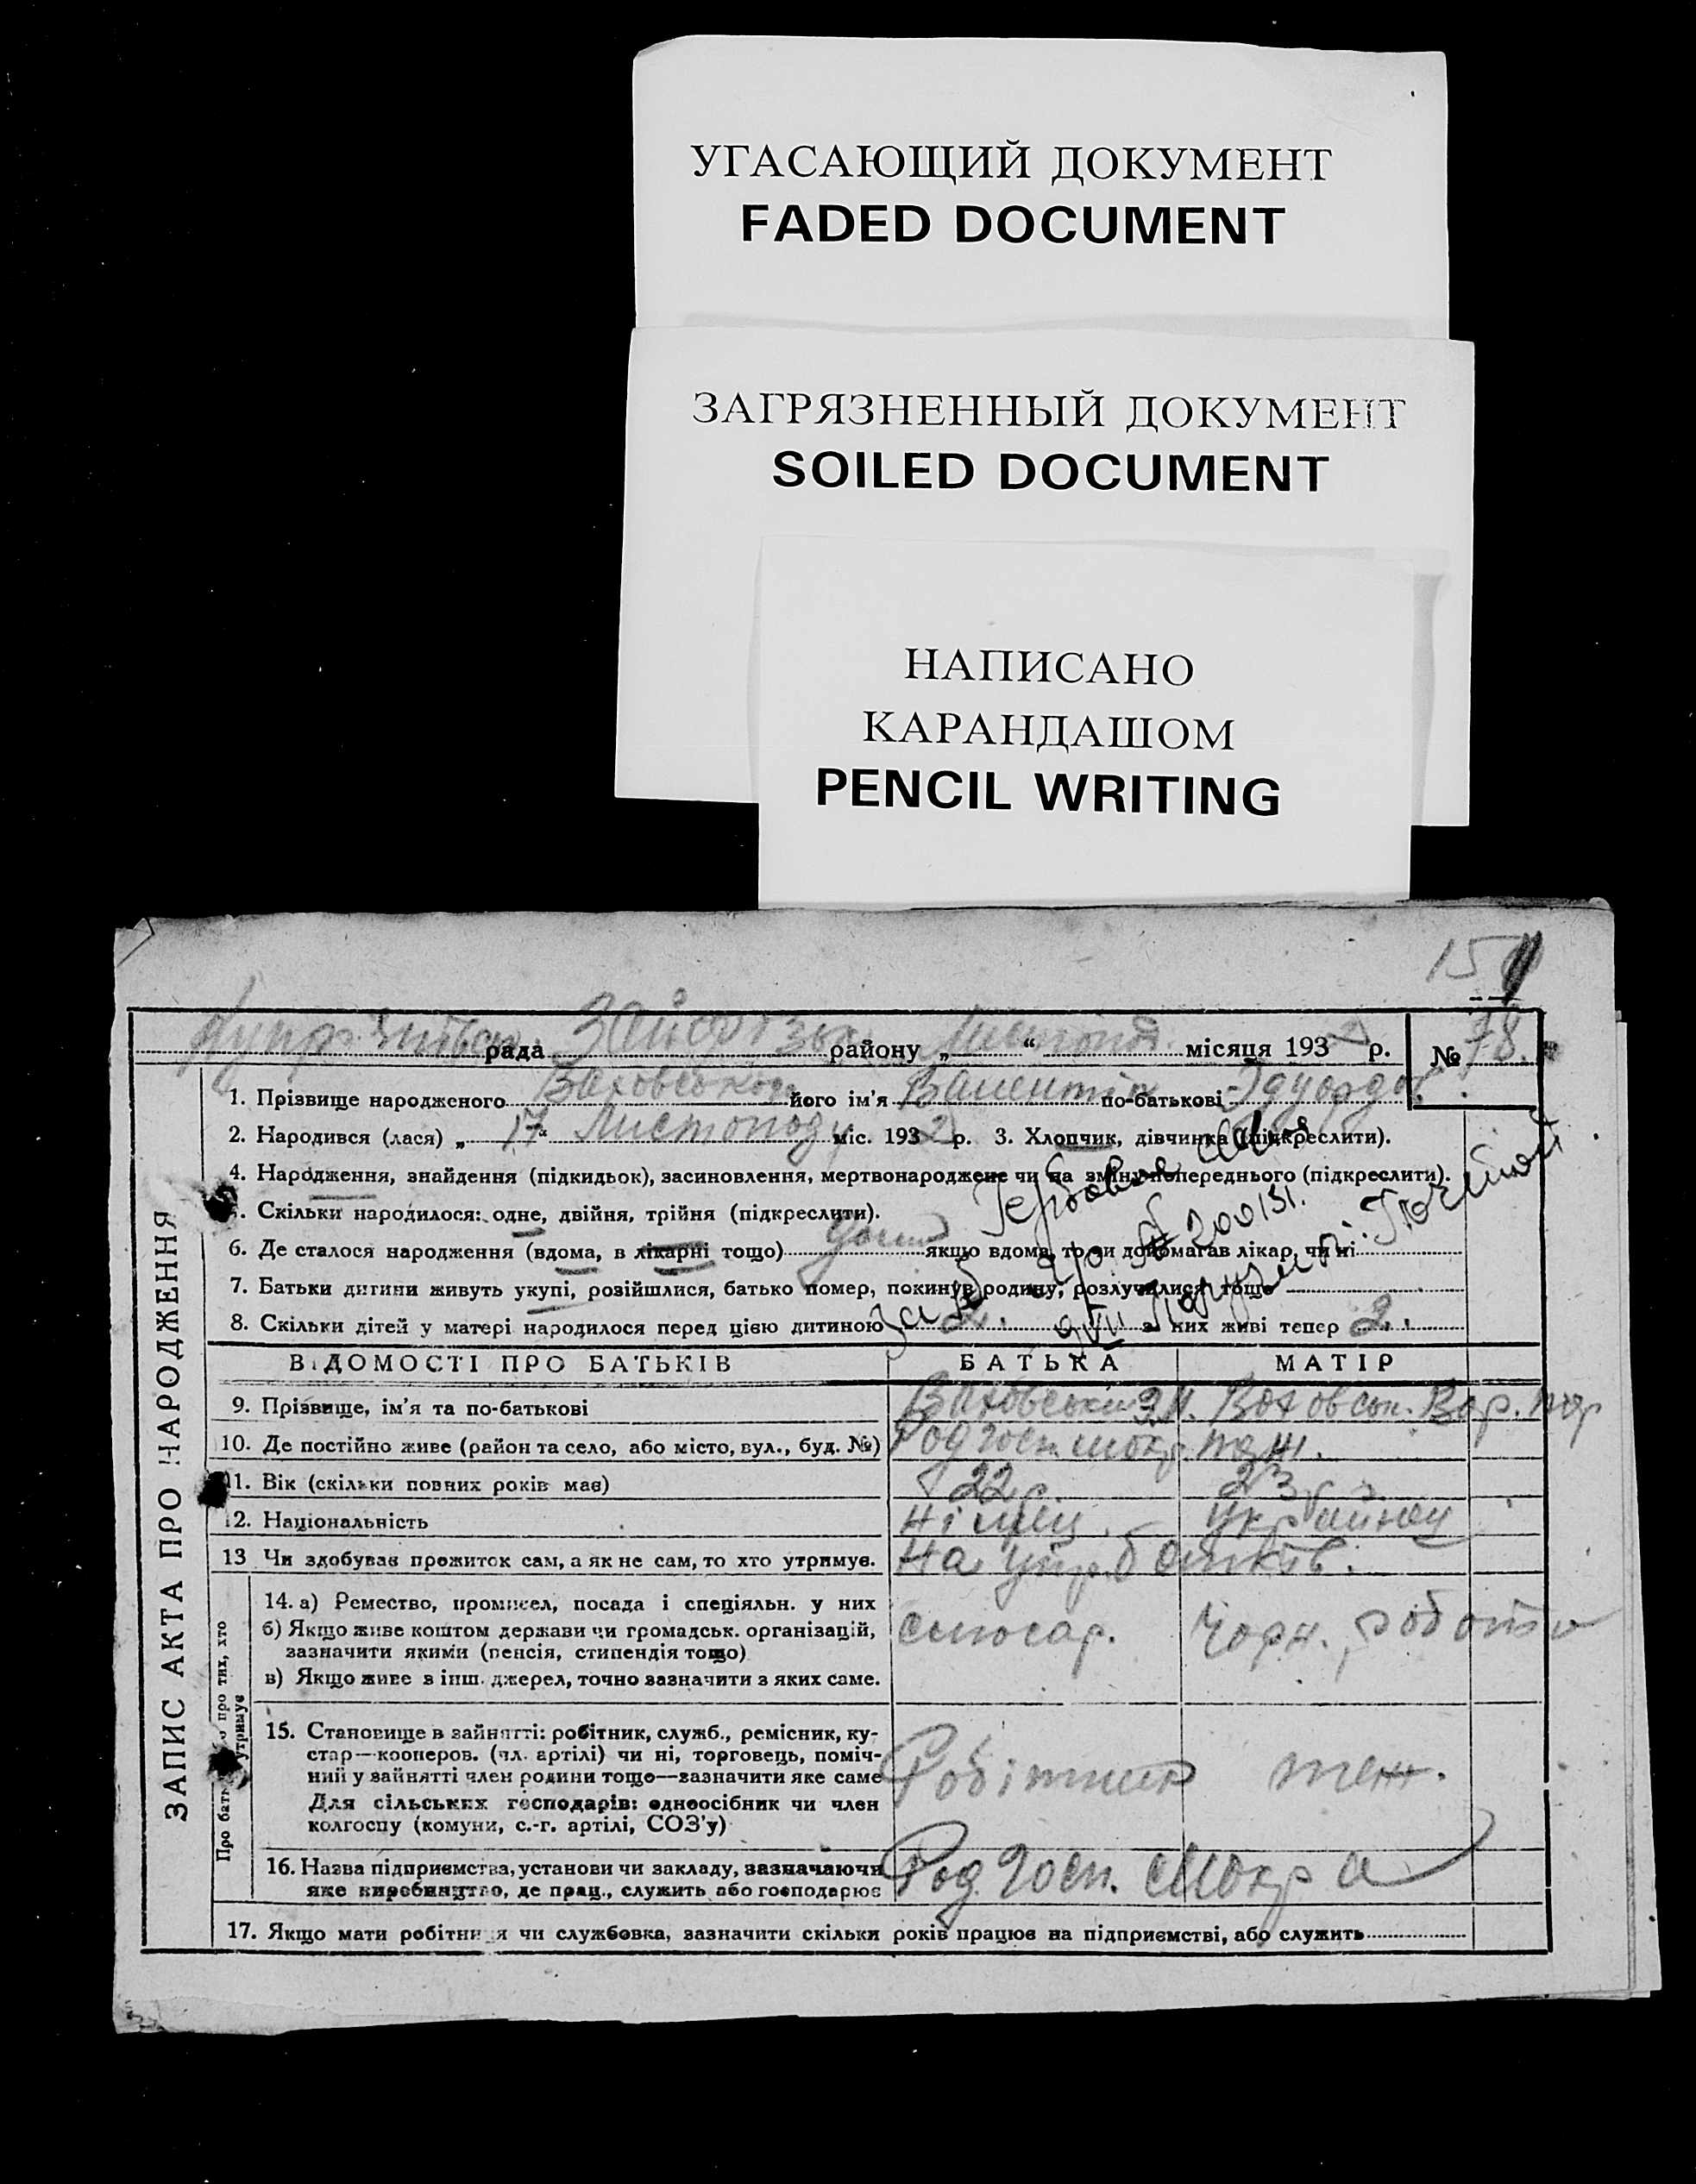 УГАСАЮЩИЙ ДОКУМЕНТ
FADED DOCUMENT
ЗАГРЯЗНЕННЫЙ ДОКУМЕНТ
SOILED DOCUMENT
НАПИСАНО
КАРАНДАШОМ
PENCIL WRITING
15
рада району „ “ місяця 1932 р. № 78.
ЗАПИС АКТА ПРО НАРОДЖЕННЯ
1. Прізвище народженого його ім'я Валентін по-батькові Эдуардов
2. Народився (лася) „ 17 “ Листопаду міс. 1932 р. 3. Хлопчик, дівчинка (підкреслити).
4. Народження, знайдення (підкидьок), засиновлення, мертвонароджене чи на зміну попереднього (підкреслити).
5. Скільки народилося: одне, двійня, трійня (підкреслити).
6. Де сталося народження (вдома, в лікарні тощо) дома якщо вдома, то чи допомагав лікар, чи ні
7. Батьки дитини живуть укупі, розійшлися, батько помер, покинув родину, розлучилися тощо
8. Скільки дітей у матері народилося перед цією дитиною 2. з них живі тепер 2.
ВІДОМОСТІ ПРО БАТЬКІВ БАТЬКА МАТІР
9. Прізвище, ім'я та по-батькові
10. Де постійно живе (район та село, або місто, вул., буд. №)
11. Вік (скільки повних років має) 22 р. 23 р.
12. Національність Німец. Українец
13 Чи здобував прожиток сам, а як не сам, то хто утримує. На утр. батьків.
Про батька про тих, хто утримує
14. а) Ремество, промисел, посада і спеціяльн. у них
б) Якщо живе коштом держави чи громадськ. організацій,
зазначити якими (пенсія, стипендія тощо)
в) Якщо живе з інш. джерел, точно зазначити з яких саме.
слюсар. Чорн. робота
15. Становище в зайнятті: робітник, служб., ремісник, ку-
стар—кооперов. (чл. артілі) чи ні, торговець, поміч-
ний у зайнятті член родини тощо—зазначити яке саме
Для сільських господарів: одноосібник чи член
колгоспу (комуни, с.-г. артілі, СОЗ'у)
Робітник теж.
16. Назва підприємства, установи чи закладу, зазначаючи
яке виробництво, де прац., служить або господарює
Рад госп. Мокра
17. Якщо мати робітниця чи службовка, зазначити скільки років працює на підприємстві, або служить